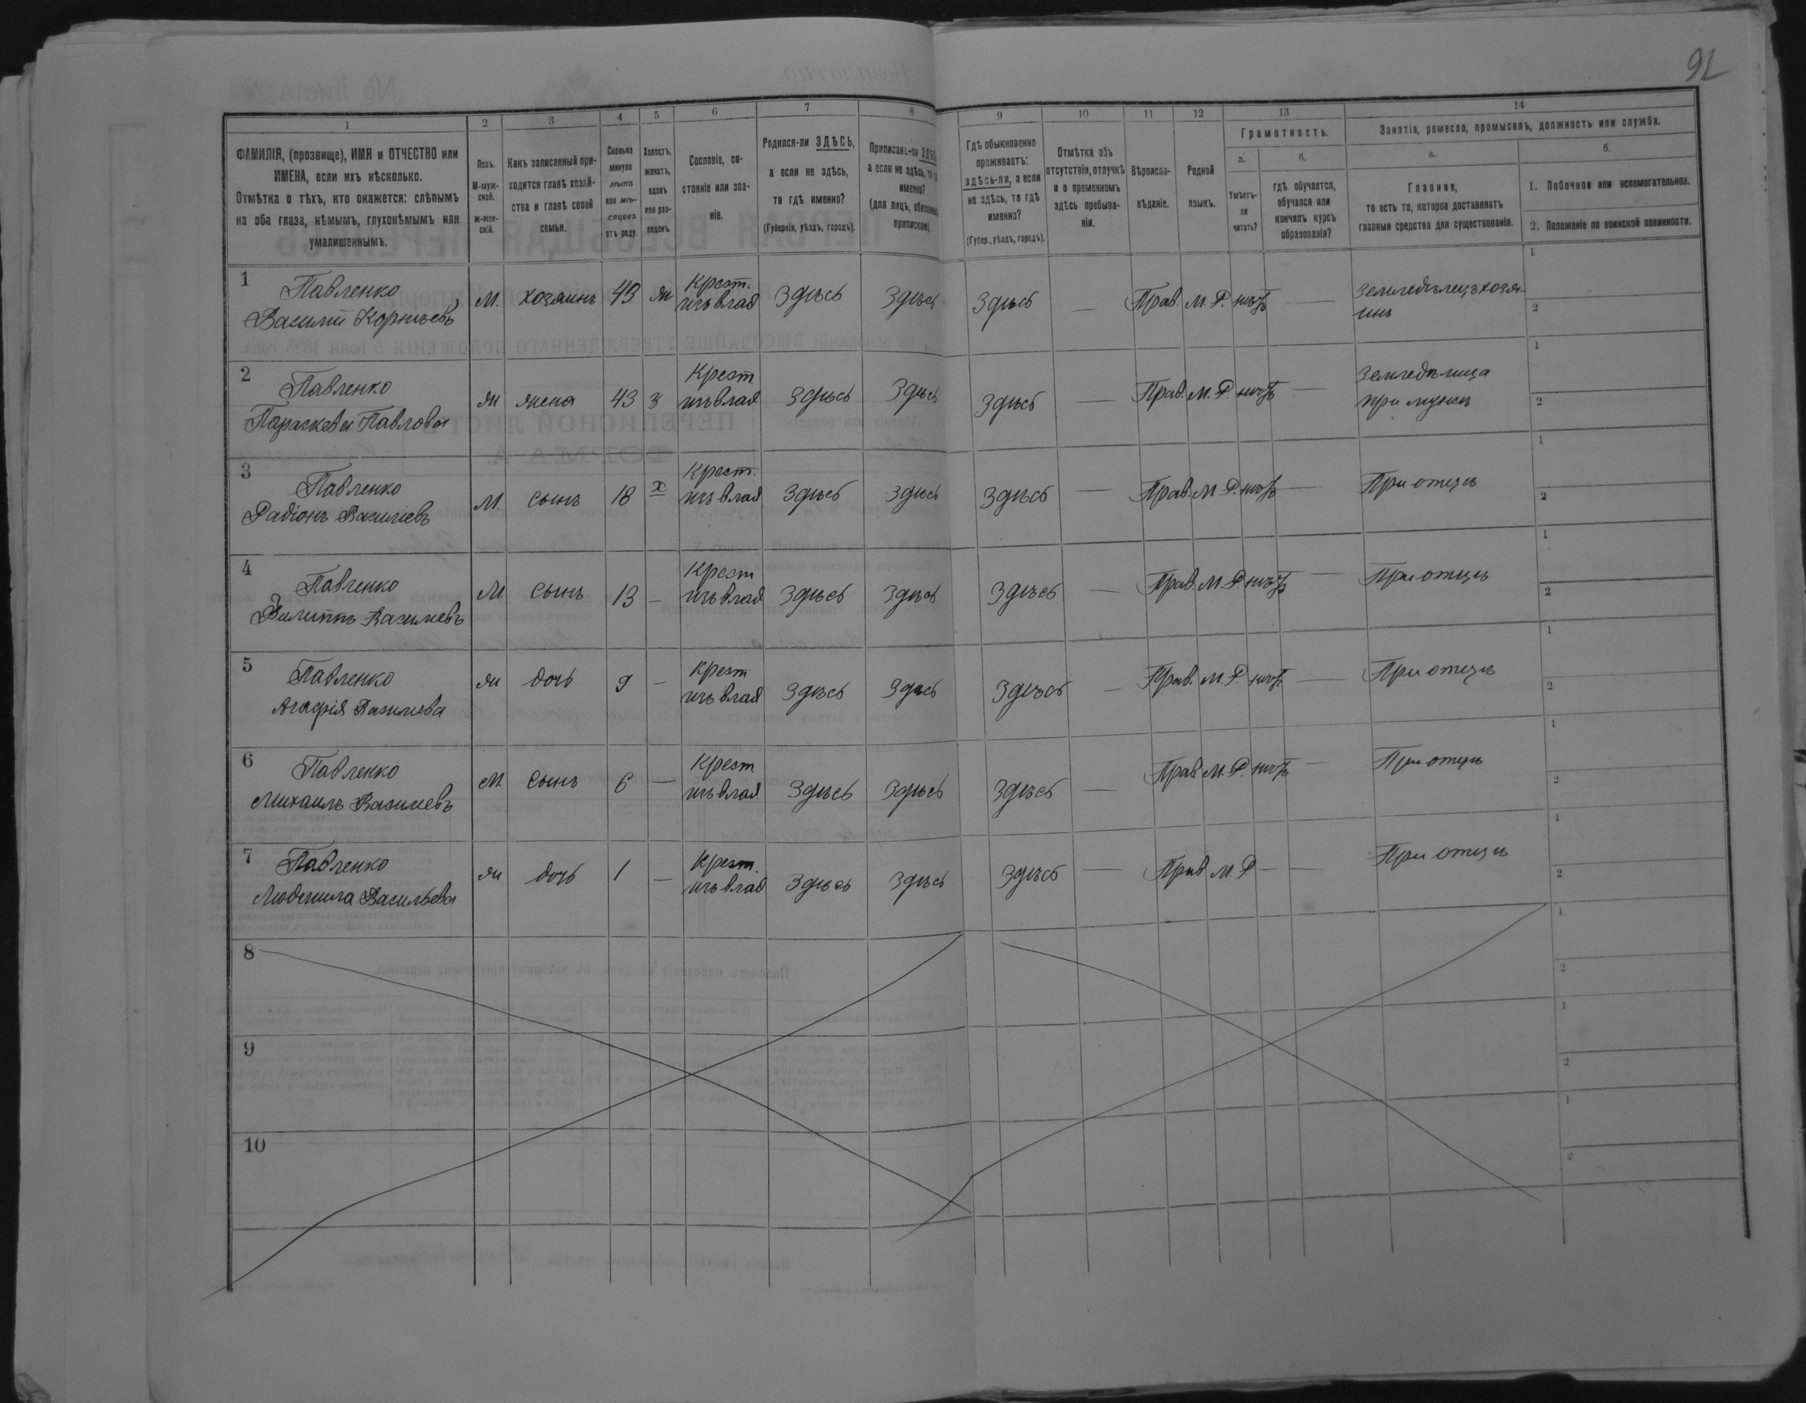 92
1 2 3 4 5 6 7 8 9 10 11 12 13 14
ФАМИЛІЯ, (прозвище), ИМЯ и ОТЧЕСТВО или ИМЕНА, если ихъ нѣсколько.
Отмѣтка о тѣхъ, кто окажется: слѣпымъ на оба глаза, нѣмымъ, глухонѣмымъ или умалишеннымъ.
Полъ. М-мужской. Ж-женскій.
Какъ записанный приходится главѣ хозяйства и главѣ своей семьи.
Сколько минуло лѣтъ или мѣсяцевъ отъ роду.
Холостъ, женатъ, вдовъ или разведенъ.
Сословіе, состояніе или званіе.
Родился-ли ЗДѢСЬ, а если не здѣсь, то гдѣ именно?
(Губернія, уѣздъ, городъ).
Приписанъ-ли ЗДѢСЬ, а если не здѣсь, то гдѣ именно?
(для лицъ, обязанныхъ припискою).
Гдѣ обыкновенно проживаетъ: здѣсь-ли, а если не здѣсь, то гдѣ именно?
(Губер., уѣздъ, городъ).
Отмѣтка объ отсутствіи, отлучкѣ и о временномъ здѣсь пребываніи.
Вѣроисповѣданіе.
Родной языкъ.
Грамотность.
а. Умѣетъ-ли читать?
б. гдѣ обучается, обучался или кончилъ курсъ образованія?
Занятіе, ремесло, промыселъ, должность или служба.
а. Главное, то есть то, которое доставляетъ главныя средства для существованія.
б. 1. Побочное или вспомогательное.
2. Положеніе по воинской повинности.
1 Павленко Василій Корнѣевъ М. хозяинъ 43 ж Крест. изъ влад Здѣсь Здѣсь Здѣсь — Прав. М. Р. нѣтъ — Земледѣлецъ хозяинъ 1 2
2 Павленко Параскева Павлова ж жена 43 з Крест изъ влад Здѣсь Здѣсь Здѣсь — Прав. М. Р. нѣтъ — Земледѣлица при мужѣ 1 2
3 Павленко Радіонъ Васил꙼іевъ М. сынъ 18 х Крест. изъ влад Здѣсь Здѣсь Здѣсь — Прав. М. Р. нѣтъ — При отцѣ 1 2
4 Павленко Филиппъ Василіевъ М сынъ 13 — Крест изъ влад Здѣсь Здѣсь Здѣсь — Прав. М. Р. нѣтъ — При отцѣ 1 2
5 Павленко Агафія Василіева ж дочь 9 — Крест изъ влад Здѣсь Здѣсь Здѣсь — Прав. М. Р. нѣтъ — При отцѣ 1 2
6 Павленко Михаилъ Василіевъ М. сынъ 6 — Крест изъ влад Здѣсь Здѣсь Здѣсь — Прав. М. Р. нѣтъ — При отцѣ 1 2
7 Павленко Людмила Васильева ж дочь 1 — Крест. изъ влад Здѣсь Здѣсь Здѣсь — Прав М Р — — При отцѣ 1 2
8 1 2
9 1 2
10 1 2